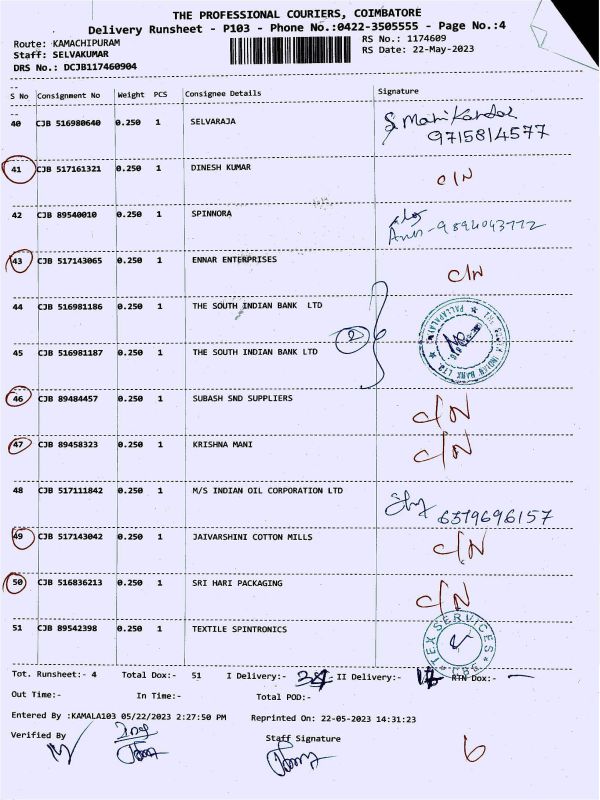 THE PROFESSIONAL COURIERS, COIMBATORE
Delivery Runsheet - P103 - Phone No.:0422-3505555 - Page No.:4
Route: KAMACHIPURAM RS No.: 1174609
Staff: SELVAKUMAR RS Date: 22-May-2023
DRS No.: DCJB117460904
S No Consignment No Weight PCS Consignee Details Signature
40 CJB 516980640 0.250 1 SELVARAJA
9715814577
41 CJB 517161321 0.250 1 DINESH KUMAR C/N
42 CJB 89540010 0.250 1 SPINNORA
43 CJB 517143065 0.250 1 ENNAR ENTERPRISES C/N
44 CJB 516981186 0.250 1 THE SOUTH INDIAN BANK LTD
2
45 CJB 516981187 0.250 1 THE SOUTH INDIAN BANK LTD
46 CJB 89484457 0.250 1 SUBASH SND SUPPLIERS C/N
47 CJB 89458323 0.250 1 KRISHNA MANI C/N
48 CJB 517111842 0.250 1 M/S INDIAN OIL CORPORATION LTD
6379696157
49 CJB 517143042 0.250 1 JAIVARSHINI COTTON MILLS C/N
50 CJB 516836213 0.250 1 SRI HARI PACKAGING C/N
51 CJB 89542398 0.250 1 TEXTILE SPINTRONICS TEX SERVICES
Tot. Runsheet:- 4 Total Dox:- 51 I Delivery:- II Delivery:- RTN Dox:-
Out Time:- In Time:- Total POD:-
Entered By :KAMALA103 05/22/2023 2:27:50 PM Reprinted On: 22-05-2023 14:31:23
Verified By Staff Signature
6